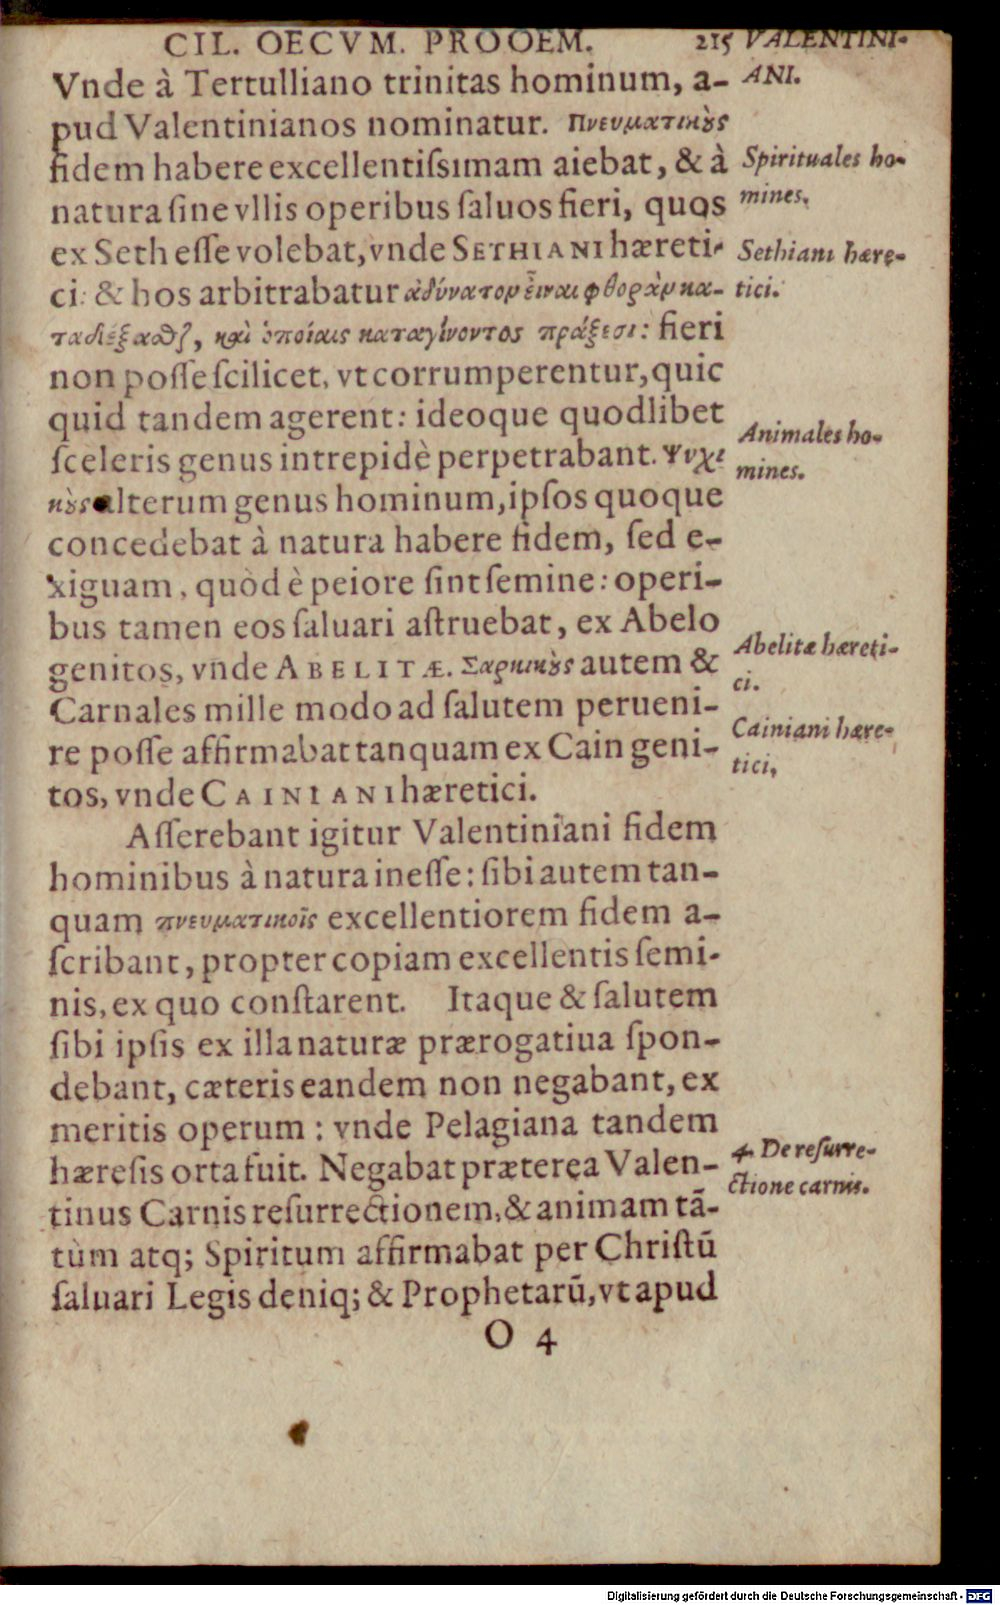 CIL. OECVM. PROOEM. 215 VALENTINI-
ANI.
Vnde à Tertulliano trinitas hominum, a-
pud Valentinianos nominatur. Πνευματικȣ̀ς
fidem habere excellentiſsimam aiebat, & à
Spirituales ho-
mines.
natura ſine vllis operibus ſaluos fieri, quos
ex Seth eſſe volebat, vnde SETHIANI hæreti-
Sethiani hære-
tici.
ci: & hos arbitrabatur ἀδύνατον εἶναι φθορὰν κα-
ταδέξαϑζ, καὶ ὁποίαις καταγίνοντος πράξεσι: fieri
non poſſe ſcilicet, vt corrumperentur, quic
quid tandem agerent: ideoque quodlibet
Animales ho-
mines.
ſceleris genus intrepidè perpetrabant. Ψυχι
κȣ̀ς alterum genus hominum, ipſos quoque
concedebat à natura habere fidem, ſed e-
xiguam, quòd è peiore ſint ſemine: operi-
bus tamen eos ſaluari aſtruebat, ex Abelo
Abelitæ hæreti-
ci.
genitos, vnde ABELITÆ. Σαρκικȣ̀ς autem &
Carnales mille modo ad ſalutem perueni-
Cainiani hære-
tici.
re poſſe affirmabat tanquam ex Cain geni-
tos, vnde CAINIANI hæretici.
Aſſerebant igitur Valentiniani fidem
hominibus à natura ineſſe: ſibi autem tan-
quam πνευματικοῖς excellentiorem fidem a-
ſcribant, propter copiam excellentis ſemi-
nis, ex quo conſtarent. Itaque & ſalutem
ſibi ipſis ex illa naturæ prærogatiua ſpon-
debant, cæteris eandem non negabant, ex
meritis operum: vnde Pelagiana tandem
hæreſis orta fuit. Negabat præterea Valen-
4. De reſurre-
ctione carnis.
tinus Carnis reſurrectionem, & animam tã-
tùm atq; Spiritum affirmabat per Chriſtũ
ſaluari Legis deniq; & Prophetarũ, vt apud
O 4
Digitalisierung gefördert durch die Deutsche Forschungsgemeinschaft - DFG